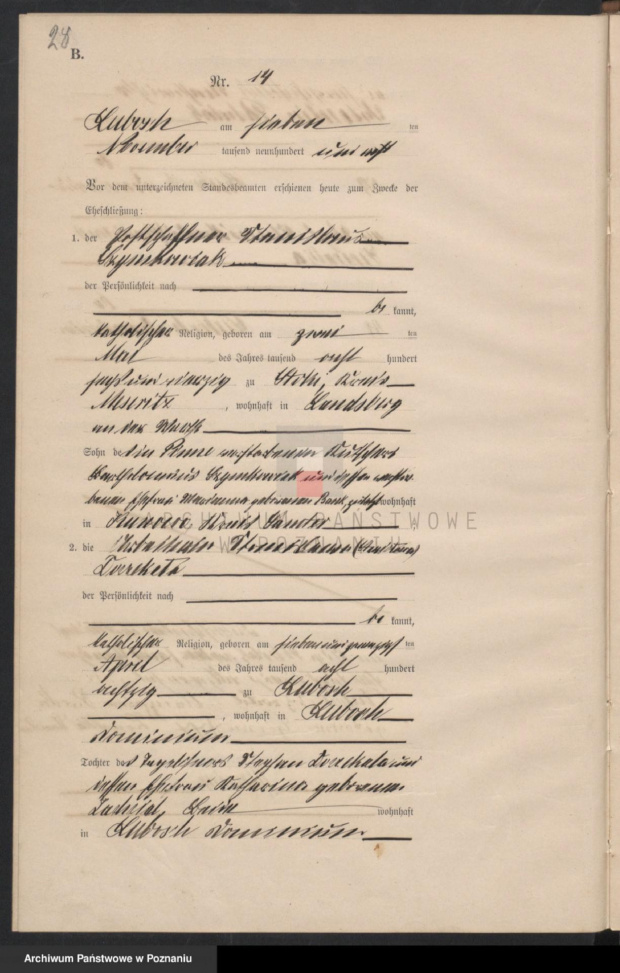 28
B.
Nr. 14
Lubosch am sieben ten
November tausend neunhundert und acht
Vor dem unterzeichneten Standesbeamten erschienen heute zum Zwecke der
Eheschließung:
1. der Postschaffner Stanislaus
Szymkowiak
der Persönlichkeit nach
be kannt,
katholischer Religion, geboren am zwei ten
Mai des Jahres tausend acht hundert
sechs und vierzig zu Kreis
Meseritz, wohnhaft in Landsberg
an der Warthe
Sohn des in Pinne verstorbenen Kutschers
Bartholomäus Szymkowiak und dessen verstor-
benen Ehefrau Marianna geborenen zuletzt wohnhaft
in Kreis Samter
ARCHIWUM PAŃSTWOWE
W POZNANIU
2. die Stanislawa
der Persönlichkeit nach
be kannt,
katholischer Religion, geboren am sieben und zwanzigsten
April des Jahres tausend acht hundert
achtzig zu Lubosch
, wohnhaft in Lubosch
Dominium
Tochter des Tagelöhners Stephan und
dessen Ehefrau Katharina geborenen
beide wohnhaft
in Lubosch Dominium
Archiwum Państwowe w Poznaniu